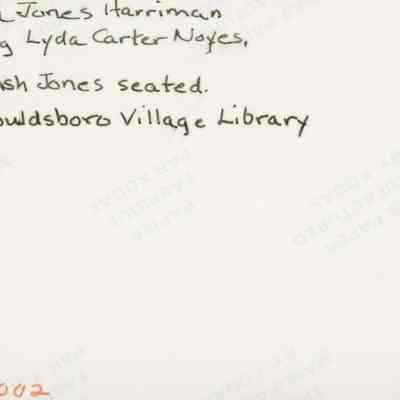 Jones Harriman
g Lyda Carter Noyes,
sh Jones seated.
ouldsboro Village Library
002